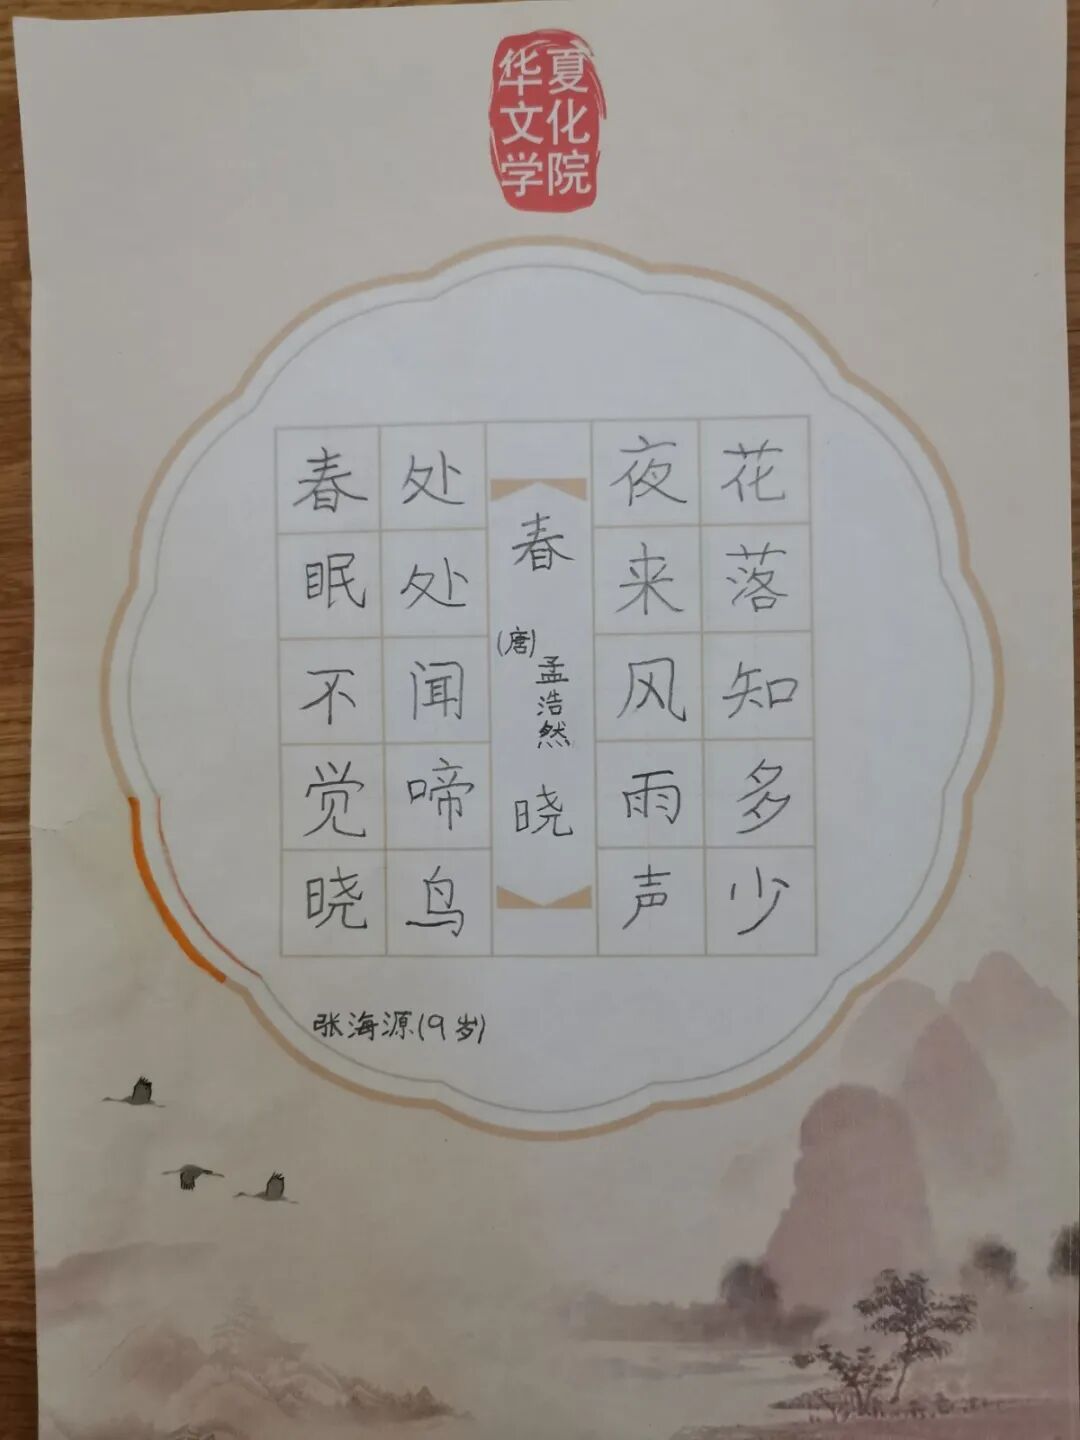 华夏
文化
学院
春眠不觉晓
处处闻啼鸟
春晓
(唐)
孟浩然
夜来风雨声
花落知多少
张海源(9岁)